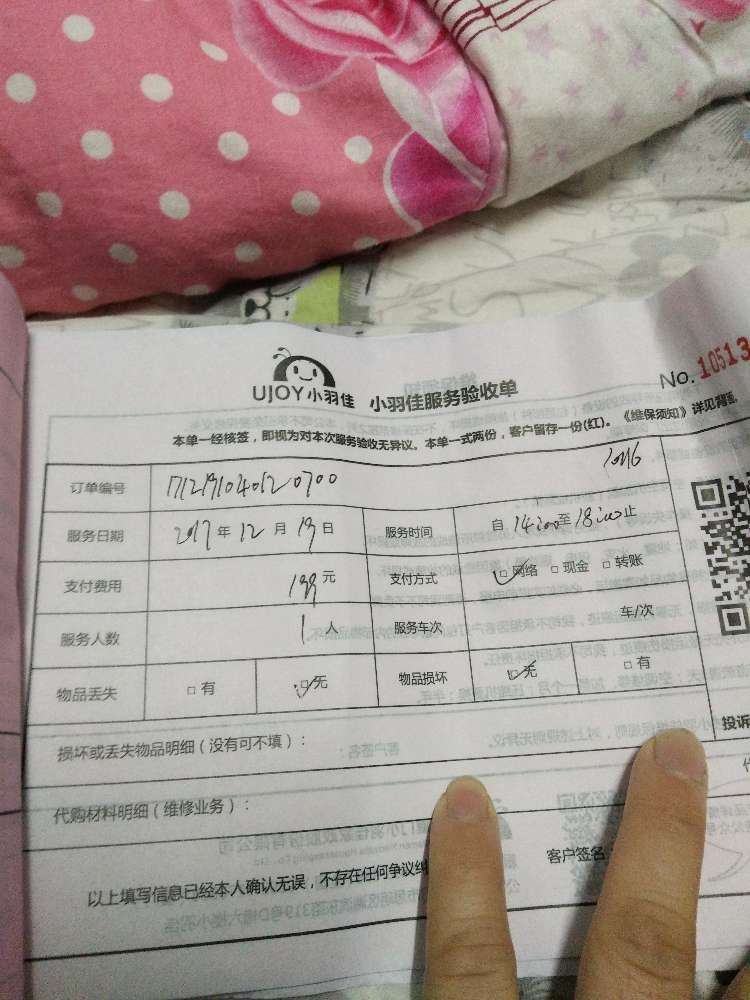 UJOY小羽佳 小羽佳服务验收单
No. 10513
本单一经核签，即视为对本次服务验收无异议。本单一式两份，客户留存一份(红)。《维保须知》详见背面
订单编号
服务日期 2017 年 12 月 19 日 服务时间 自 14:00 至 18:00 止
支付费用 199 元 支付方式 ☑ 网络 □ 现金 □ 转账
服务人数 1 人 服务车次 车/次
物品丢失 □ 有 ☑ 无 物品损坏 ☑ 无 □ 有
损坏或丢失物品明细（没有可不填）：
投诉
代购材料明细（维修业务）：
以上填写信息已经本人确认无误，不存在任何争议纠
客户签名：